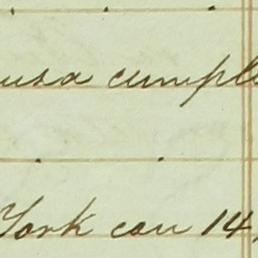 usa cumpl
York con 14,